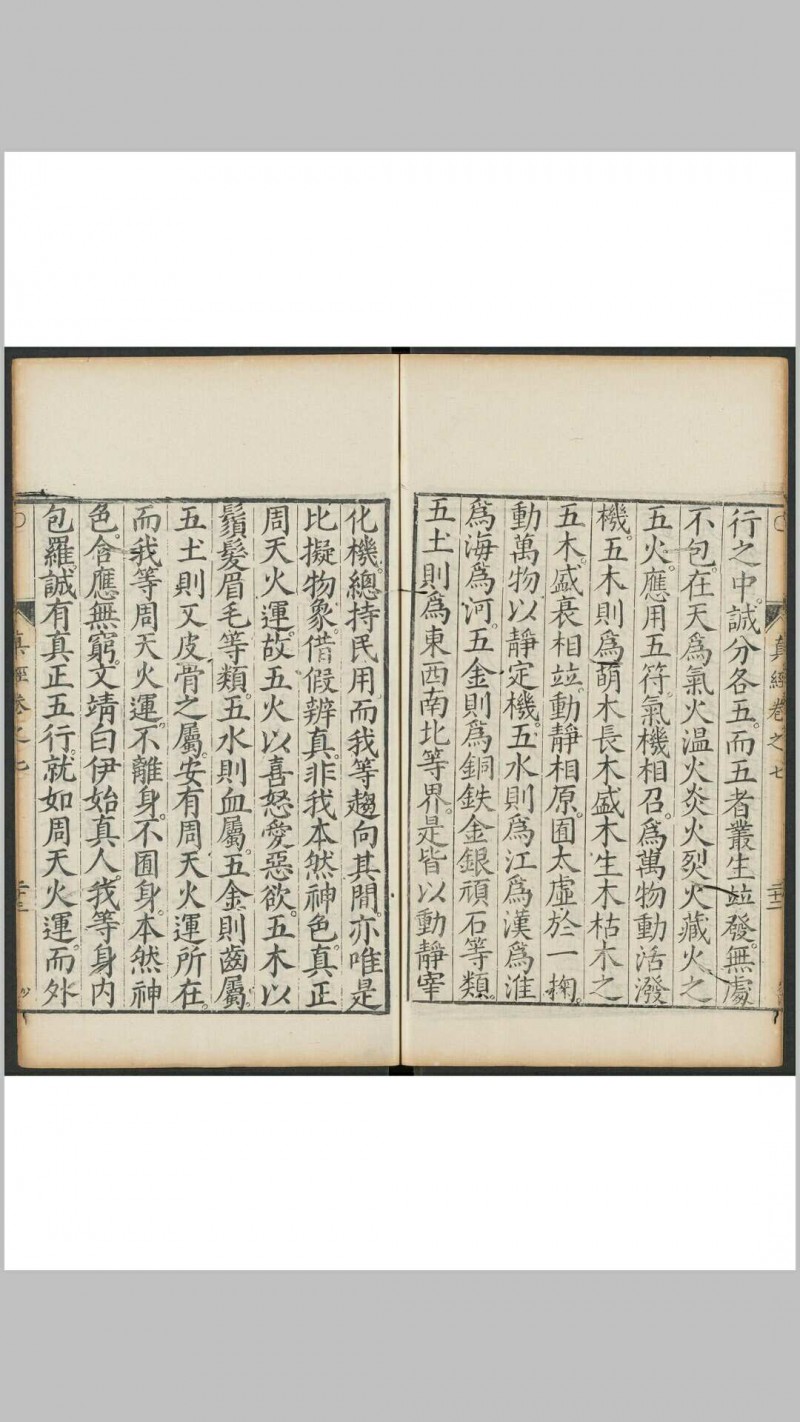 行之中。誠分各五。而五者叢生竝發。無處
不包。在天爲氣火溫火炎火烈火藏火之
五火。應用五符。氣機相召。爲萬物動活潑
機。五木則爲萌木長木盛木生木枯木之
五木。盛衰相竝。動靜相原。囿太虛於一掬。
動萬物以靜定機。五水則爲江爲漢爲淮
爲海爲河。五金則爲銅鉄金銀頑石等類。
五土則爲東西南北等界。是皆以動靜宰
真經卷之七
化機。總持民用。而我等趨向其間。亦唯是
比擬物象。借假辨真。非我本然神色。真正
周天火運。故五火以喜怒愛惡欲。五木以
鬚髮眉毛等類。五水則血屬。五金則齒屬。
五土則又皮骨之屬。安有周天火運所在。
而我等周天火運。不離身。不囿身。本然神
色。含應無窮。文靖白伊始真人。我等身內
包羅。誠有真正五行。就如周天火運。而外
真經卷之七